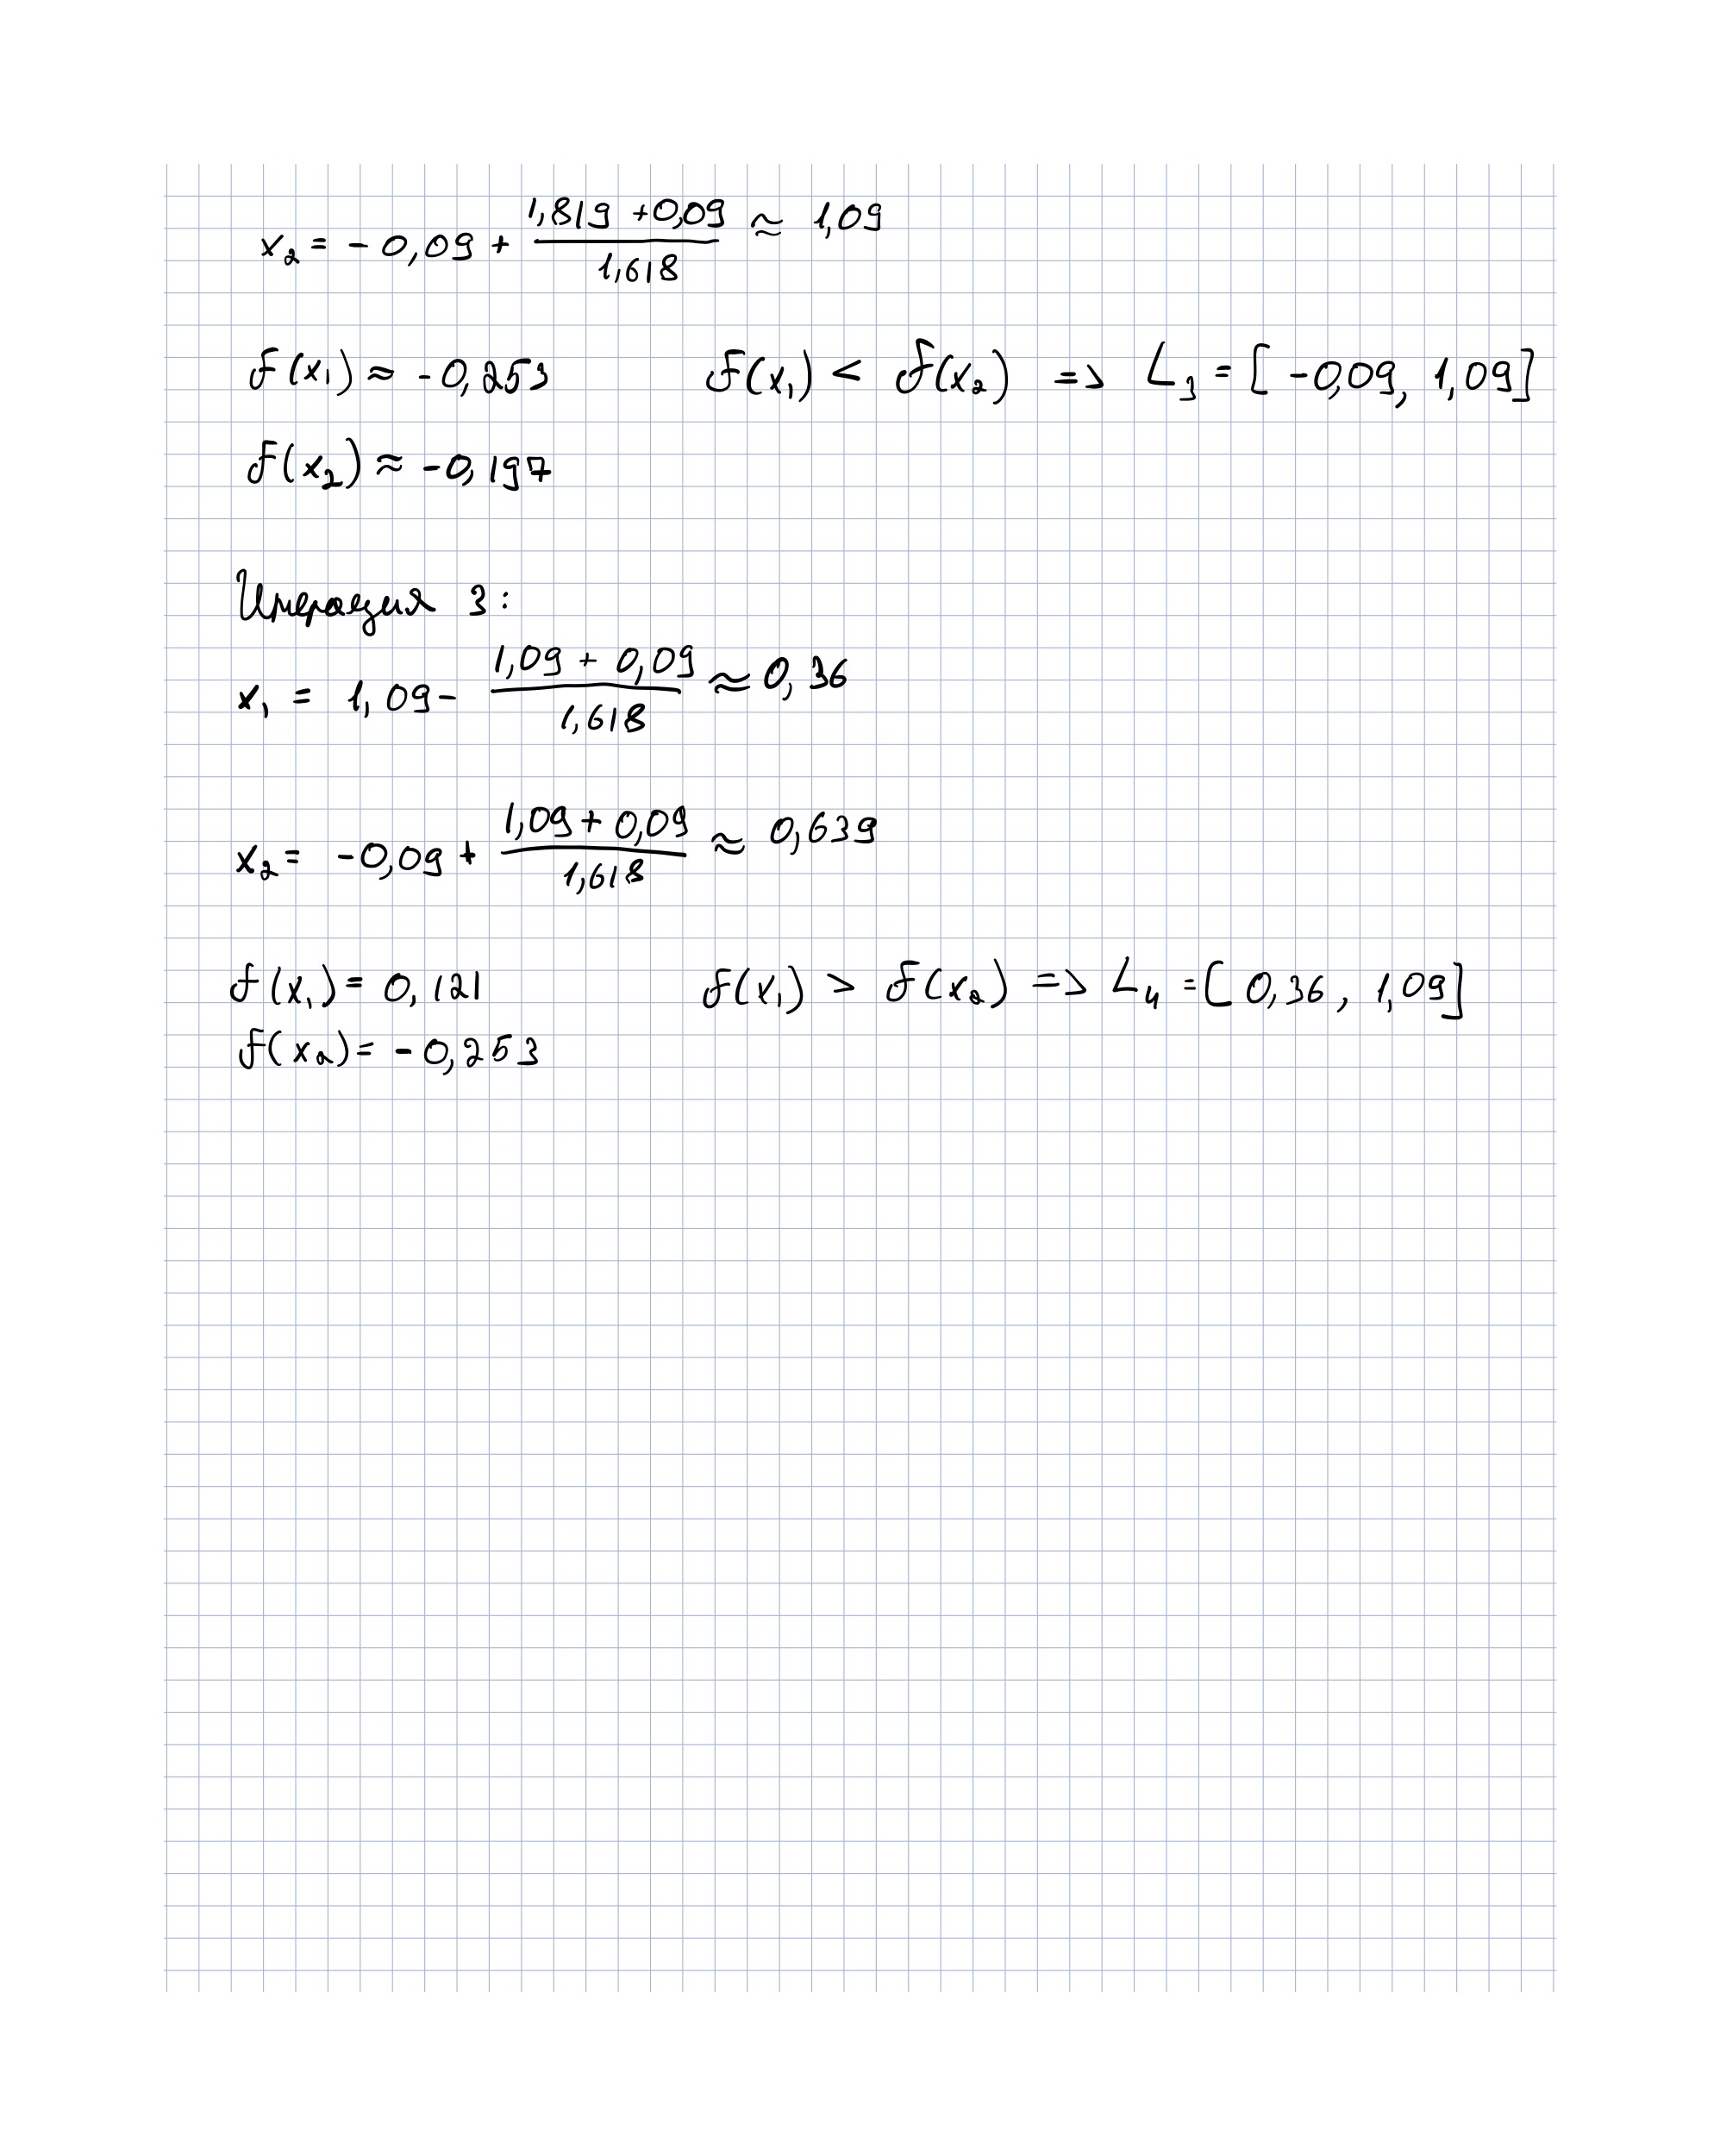 x₂ = - 0,09 + (1,819 + 0,09)/1,618 ≈ 1,09
f(x₁) ≈ - 0,253 f(x₁) < f(x₂) => L₃ = [-0,09, 1,09]
f(x₂) ≈ -0,197
Итерация 3:
x₁ = 1,09 - (1,09 + 0,09)/1,618 ≈ 0,36
x₂ = -0,09 + (1,09 + 0,09)/1,618 ≈ 0,639
f(x₁) = 0,121 f(x₁) > f(x₂) => L₄ = [0,36, 1,09]
f(x₂) = - 0,253